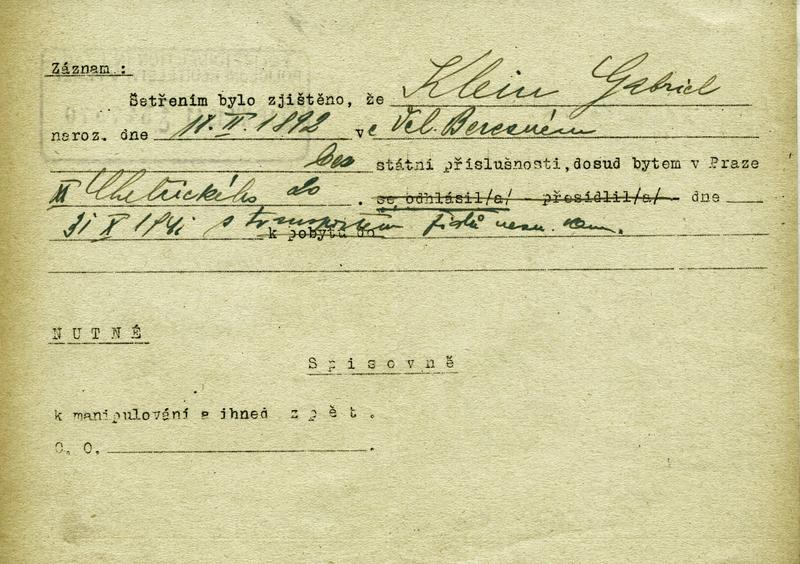 Záznam :
Šetřením bylo zjištěno, že Klein Gabriel
naroz. dne 18. II. 1892 ve Vel. Berezném
bez státní příslušnosti, dosud bytem v Praze
XI Chelčického 20 . se odhlásil/a/ - přesídlil/a/ - dne
31 X 1941 s transportem židů nezn. kam.
k pobytu do
NUTNÉ
Spisovně
k manipulování a ihned zpět.
O. O. .